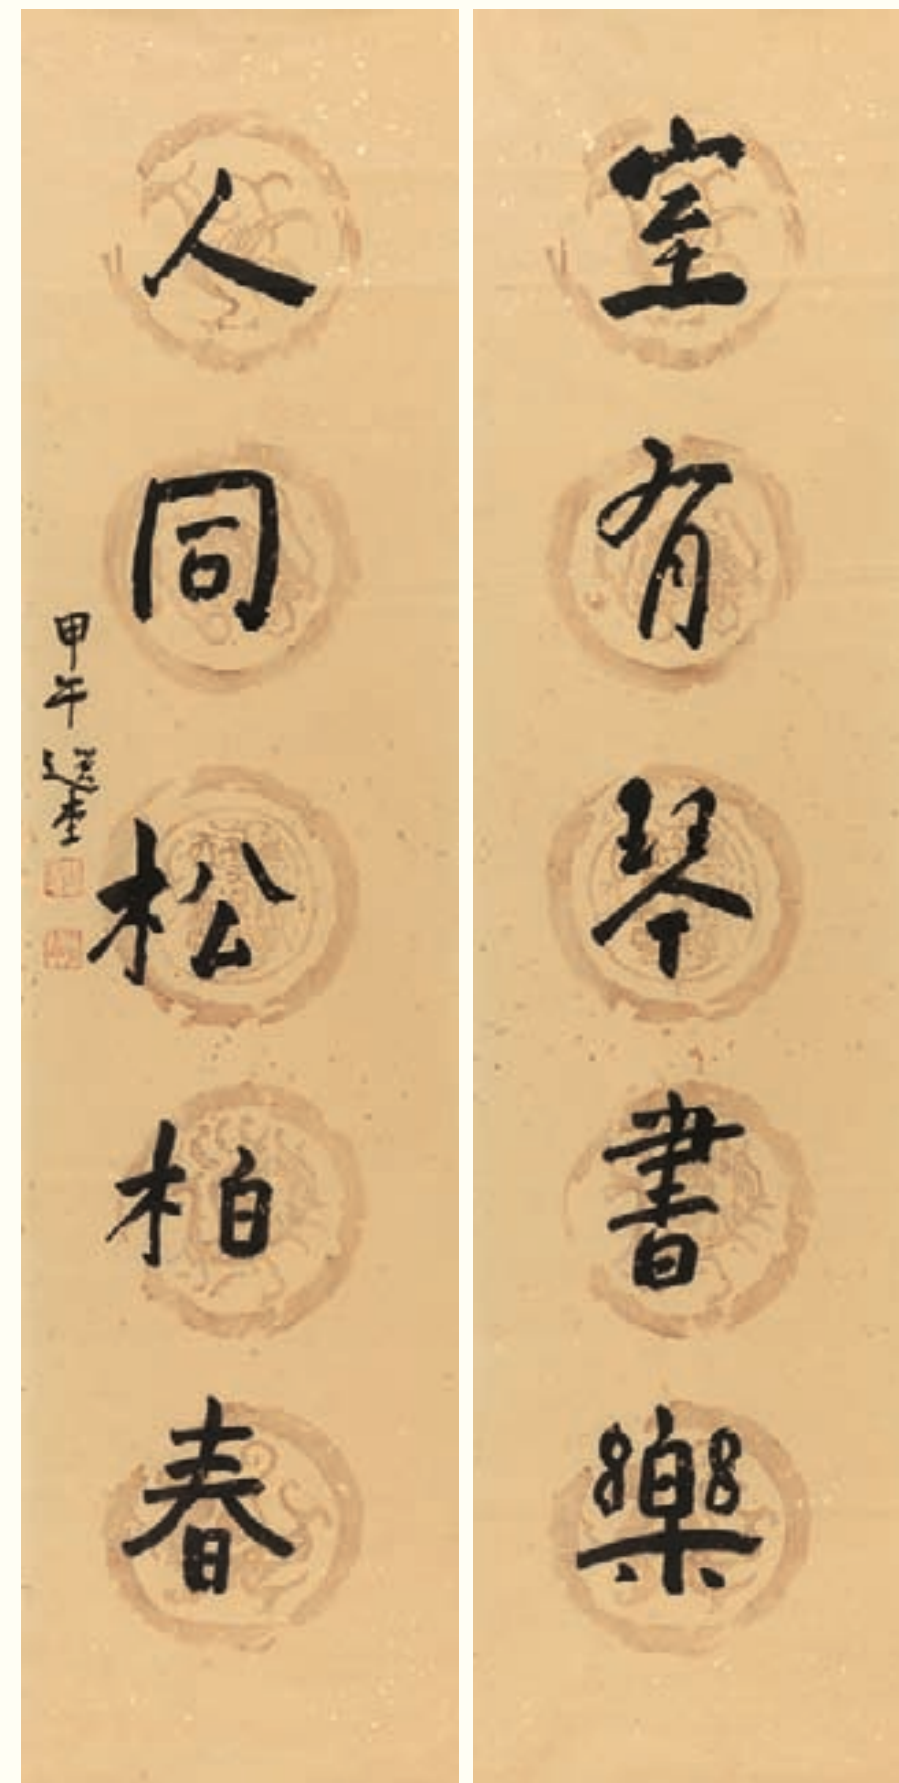 室有琴書樂
人同松柏春
甲午選堂